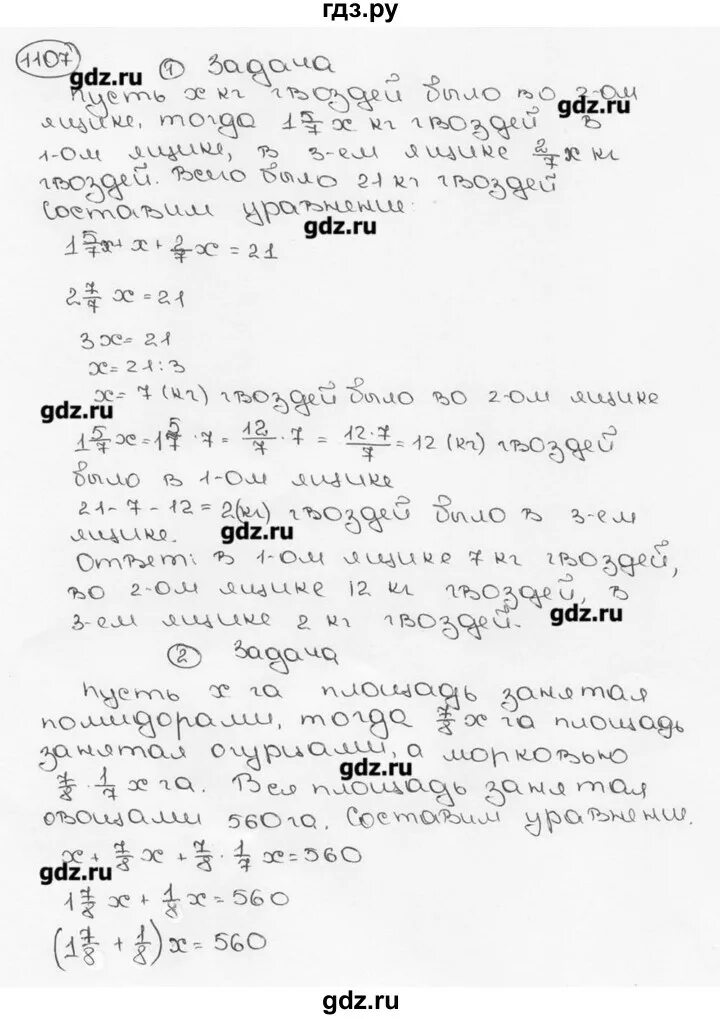 гдз.ру
1107
gdz.ru
① Задача
Пусть x кг гвоздей было во 2-ом
gdz.ru
ящике, тогда 1 5/7 x кг гвоздей в
1-ом ящике, в 3-ем ящике 2/7 x кг
гвоздей. Всего было 21 кг гвоздей
Составим уравнение:
gdz.ru
1 5/7 x + x + 2/7 x = 21
2 7/7 x = 21
3x = 21
x = 21 : 3
x = 7 (кг) гвоздей было во 2-ом ящике
gdz.ru
1 5/7 x = 1 5/7 · 7 = 12/7 · 7 = 12·7/7 = 12 (кг) гвоздей
было в 1-ом ящике
21 - 7 - 12 = 2(кг) гвоздей было в 3-ем
ящике.
gdz.ru
Ответ: в 1-ом ящике 7 кг гвоздей,
во 2-ом ящике 12 кг гвоздей, в
3-ем ящике 2 кг гвоздей.
gdz.ru
② Задача
Пусть x га площадь занятая
помидорами, тогда 7/8 x га площадь
занятая огурцами, а морковью
gdz.ru
7/8 · 1/7 x га. Вся площадь занятая
овощами 560 га. Составим уравнение.
x + 7/8 x + 7/8 · 1/7 x = 560
gdz.ru
1 7/8 x + 1/8 x = 560
(1 7/8 + 1/8) x = 560
gdz.ru